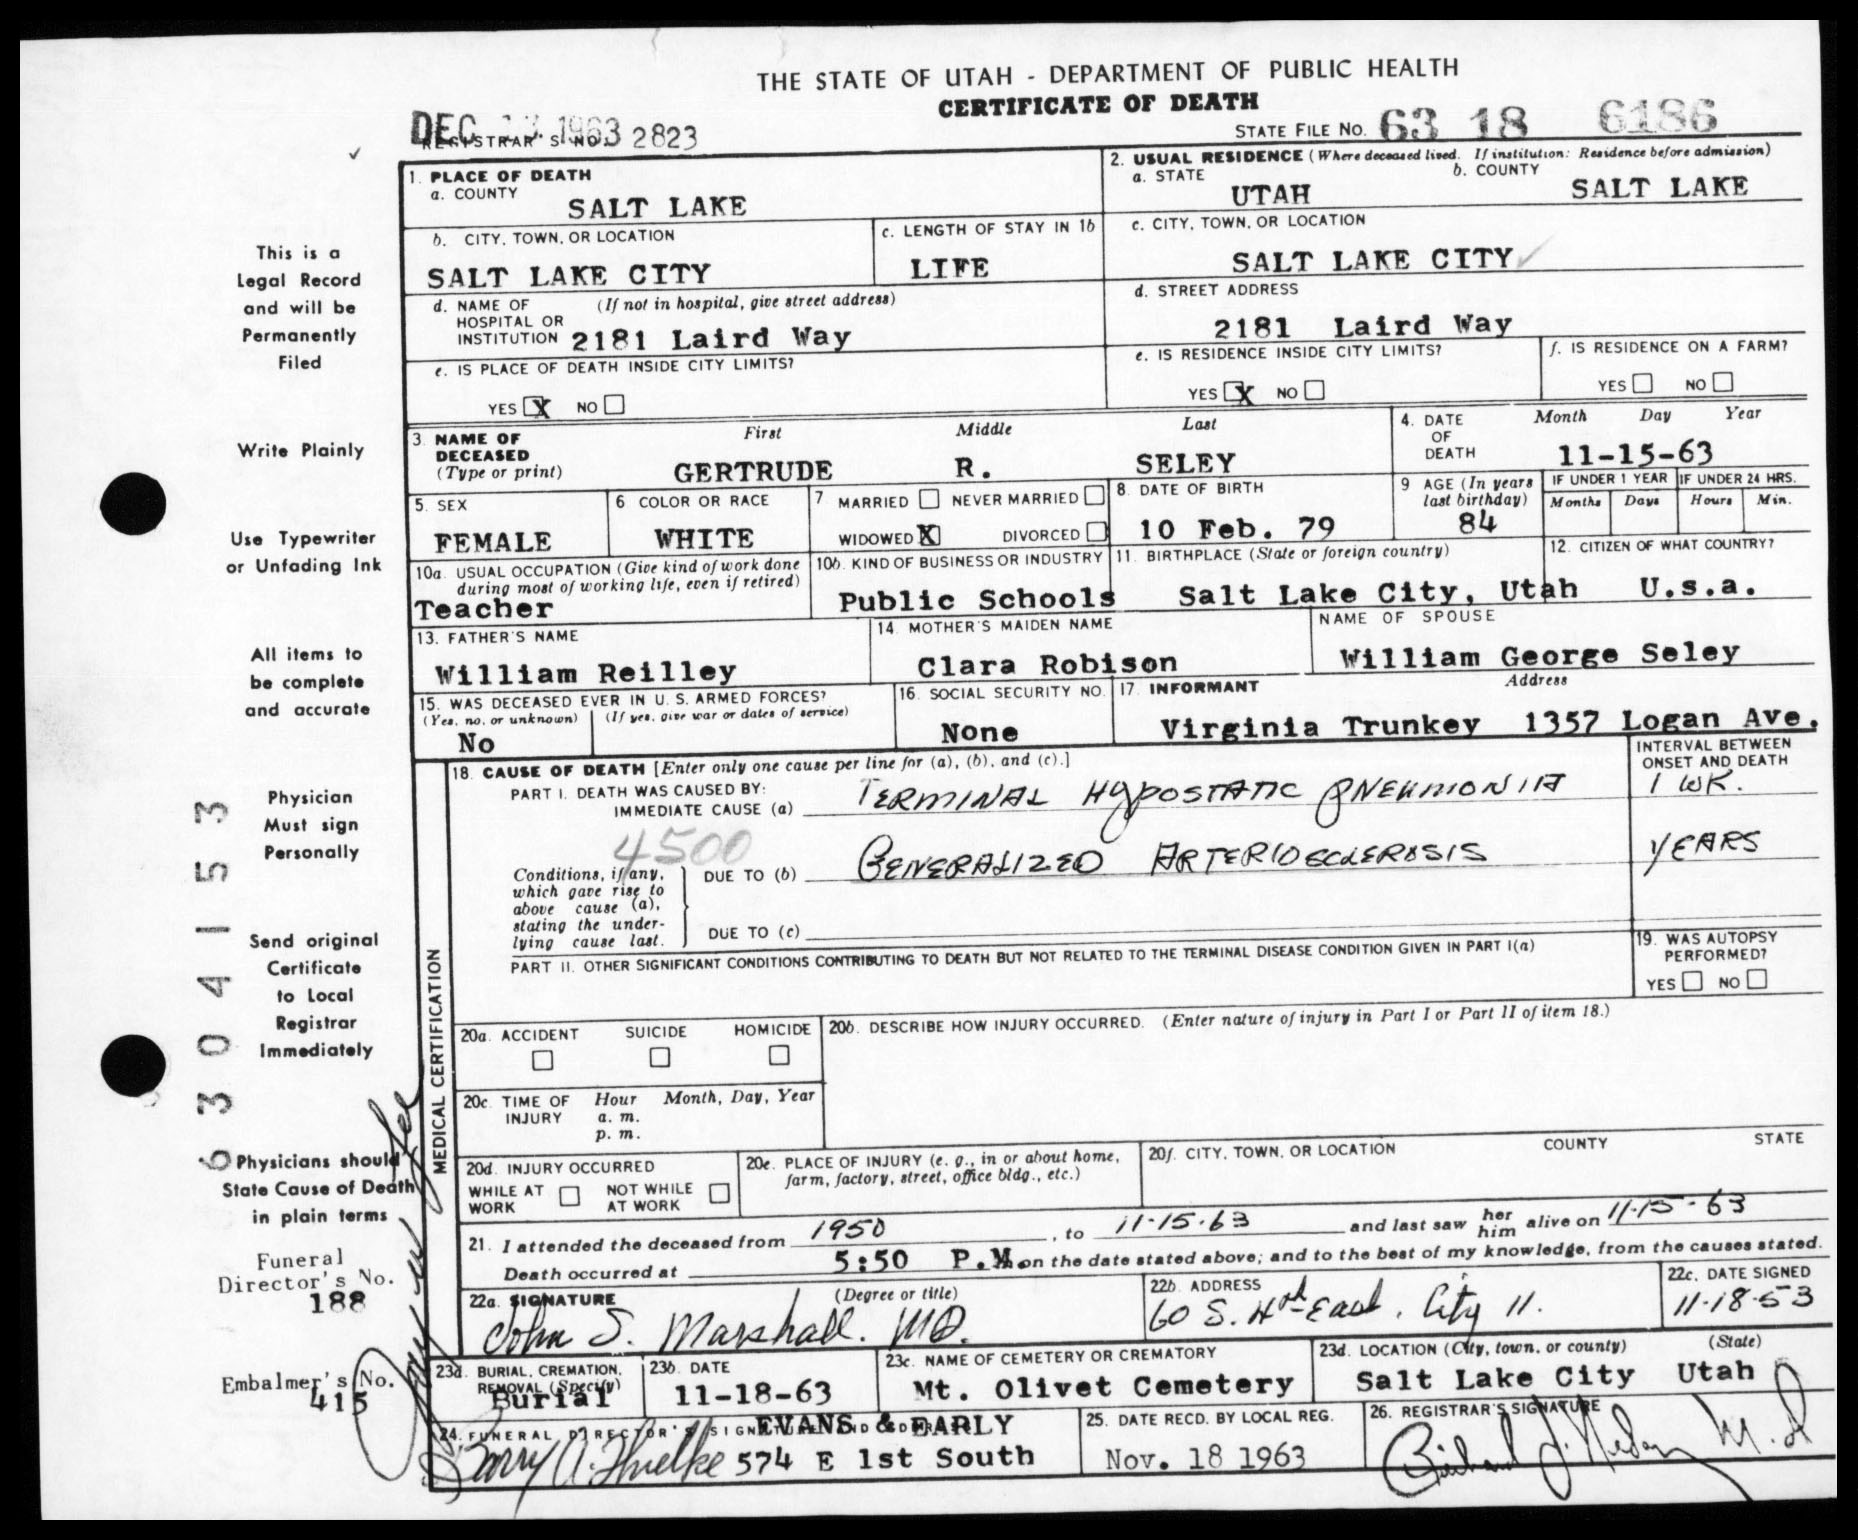 THE STATE OF UTAH - DEPARTMENT OF PUBLIC HEALTH
CERTIFICATE OF DEATH
DEC 1963
REGISTRAR'S NO. 2823
STATE FILE NO. 63 18 6186
1. PLACE OF DEATH
a. COUNTY
SALT LAKE
2. USUAL RESIDENCE (Where deceased lived. If institution: Residence before admission)
a. STATE b. COUNTY
UTAH SALT LAKE
b. CITY, TOWN, OR LOCATION
SALT LAKE CITY
c. LENGTH OF STAY IN 1b
LIFE
c. CITY, TOWN, OR LOCATION
SALT LAKE CITY
d. NAME OF (If not in hospital, give street address)
HOSPITAL OR
INSTITUTION 2181 Laird Way
d. STREET ADDRESS
2181 Laird Way
e. IS PLACE OF DEATH INSIDE CITY LIMITS?
YES X NO
e. IS RESIDENCE INSIDE CITY LIMITS?
YES X NO
f. IS RESIDENCE ON A FARM?
YES NO
3. NAME OF First Middle Last
DECEASED
(Type or print) GERTRUDE R. SELEY
4. DATE Month Day Year
OF
DEATH 11-15-63
5. SEX
FEMALE
6 COLOR OR RACE
WHITE
7 MARRIED NEVER MARRIED
WIDOWED X DIVORCED
8. DATE OF BIRTH
10 Feb. 79
9 AGE (In years
last birthday)
84
IF UNDER 1 YEAR IF UNDER 24 HRS.
Months Days Hours Min.
10a. USUAL OCCUPATION (Give kind of work done
during most of working life, even if retired)
Teacher
10b. KIND OF BUSINESS OR INDUSTRY
Public Schools
11. BIRTHPLACE (State or foreign country)
Salt Lake City, Utah
12. CITIZEN OF WHAT COUNTRY?
U.s.a.
13. FATHER'S NAME
William Reilley
14. MOTHER'S MAIDEN NAME
Clara Robison
NAME OF SPOUSE
William George Seley
15. WAS DECEASED EVER IN U. S. ARMED FORCES?
(Yes, no, or unknown) (If yes, give war or dates of service)
No
16. SOCIAL SECURITY NO.
None
17. INFORMANT Address
Virginia Trunkey 1357 Logan Ave.
MEDICAL CERTIFICATION
18. CAUSE OF DEATH [Enter only one cause per line for (a), (b), and (c).]
INTERVAL BETWEEN
ONSET AND DEATH
PART I. DEATH WAS CAUSED BY:
IMMEDIATE CAUSE (a) TERMINAL HYPOSTATIC PNEUMONIA 1 WK.
4500
Conditions, if any,
which gave rise to
above cause (a),
stating the under-
lying cause last.
DUE TO (b) GENERALIZED ARTERIOSCLEROSIS YEARS
DUE TO (c)
PART II. OTHER SIGNIFICANT CONDITIONS CONTRIBUTING TO DEATH BUT NOT RELATED TO THE TERMINAL DISEASE CONDITION GIVEN IN PART I(a)
19. WAS AUTOPSY
PERFORMED?
YES NO
20a. ACCIDENT SUICIDE HOMICIDE
20b. DESCRIBE HOW INJURY OCCURRED. (Enter nature of injury in Part I or Part II of item 18.)
20c. TIME OF Hour Month, Day, Year
INJURY a. m.
p. m.
20d. INJURY OCCURRED
WHILE AT NOT WHILE
WORK AT WORK
20e. PLACE OF INJURY (e. g., in or about home,
farm, factory, street, office bldg., etc.)
20f. CITY, TOWN, OR LOCATION COUNTY STATE
21. I attended the deceased from 1950, to 11-15-63 and last saw her him alive on 11-15-63
Death occurred at 5:50 P.M. on the date stated above; and to the best of my knowledge, from the causes stated.
22a. SIGNATURE (Degree or title)
John S. Marshall. MD.
22b. ADDRESS
60 S. 4th East, City 11.
22c. DATE SIGNED
11-18-53
23a. BURIAL, CREMATION,
REMOVAL (Specify)
Burial
23b. DATE
11-18-63
23c. NAME OF CEMETERY OR CREMATORY
Mt. Olivet Cemetery
23d. LOCATION (City, town, or county) (State)
Salt Lake City Utah
24. FUNERAL DIRECTOR'S SIGNATURE AND ADDRESS
EVANS & EARLY
574 E 1st South
25. DATE RECD. BY LOCAL REG.
Nov. 18 1963
26. REGISTRAR'S SIGNATURE
M.D
This is a
Legal Record
and will be
Permanently
Filed
Write Plainly
Use Typewriter
or Unfading Ink
All items to
be complete
and accurate
Physician
Must sign
Personally
Send original
Certificate
to Local
Registrar
Immediately
Physicians should
State Cause of Death
in plain terms
Funeral
Director's No.
188
Embalmer's No.
415
63 04153